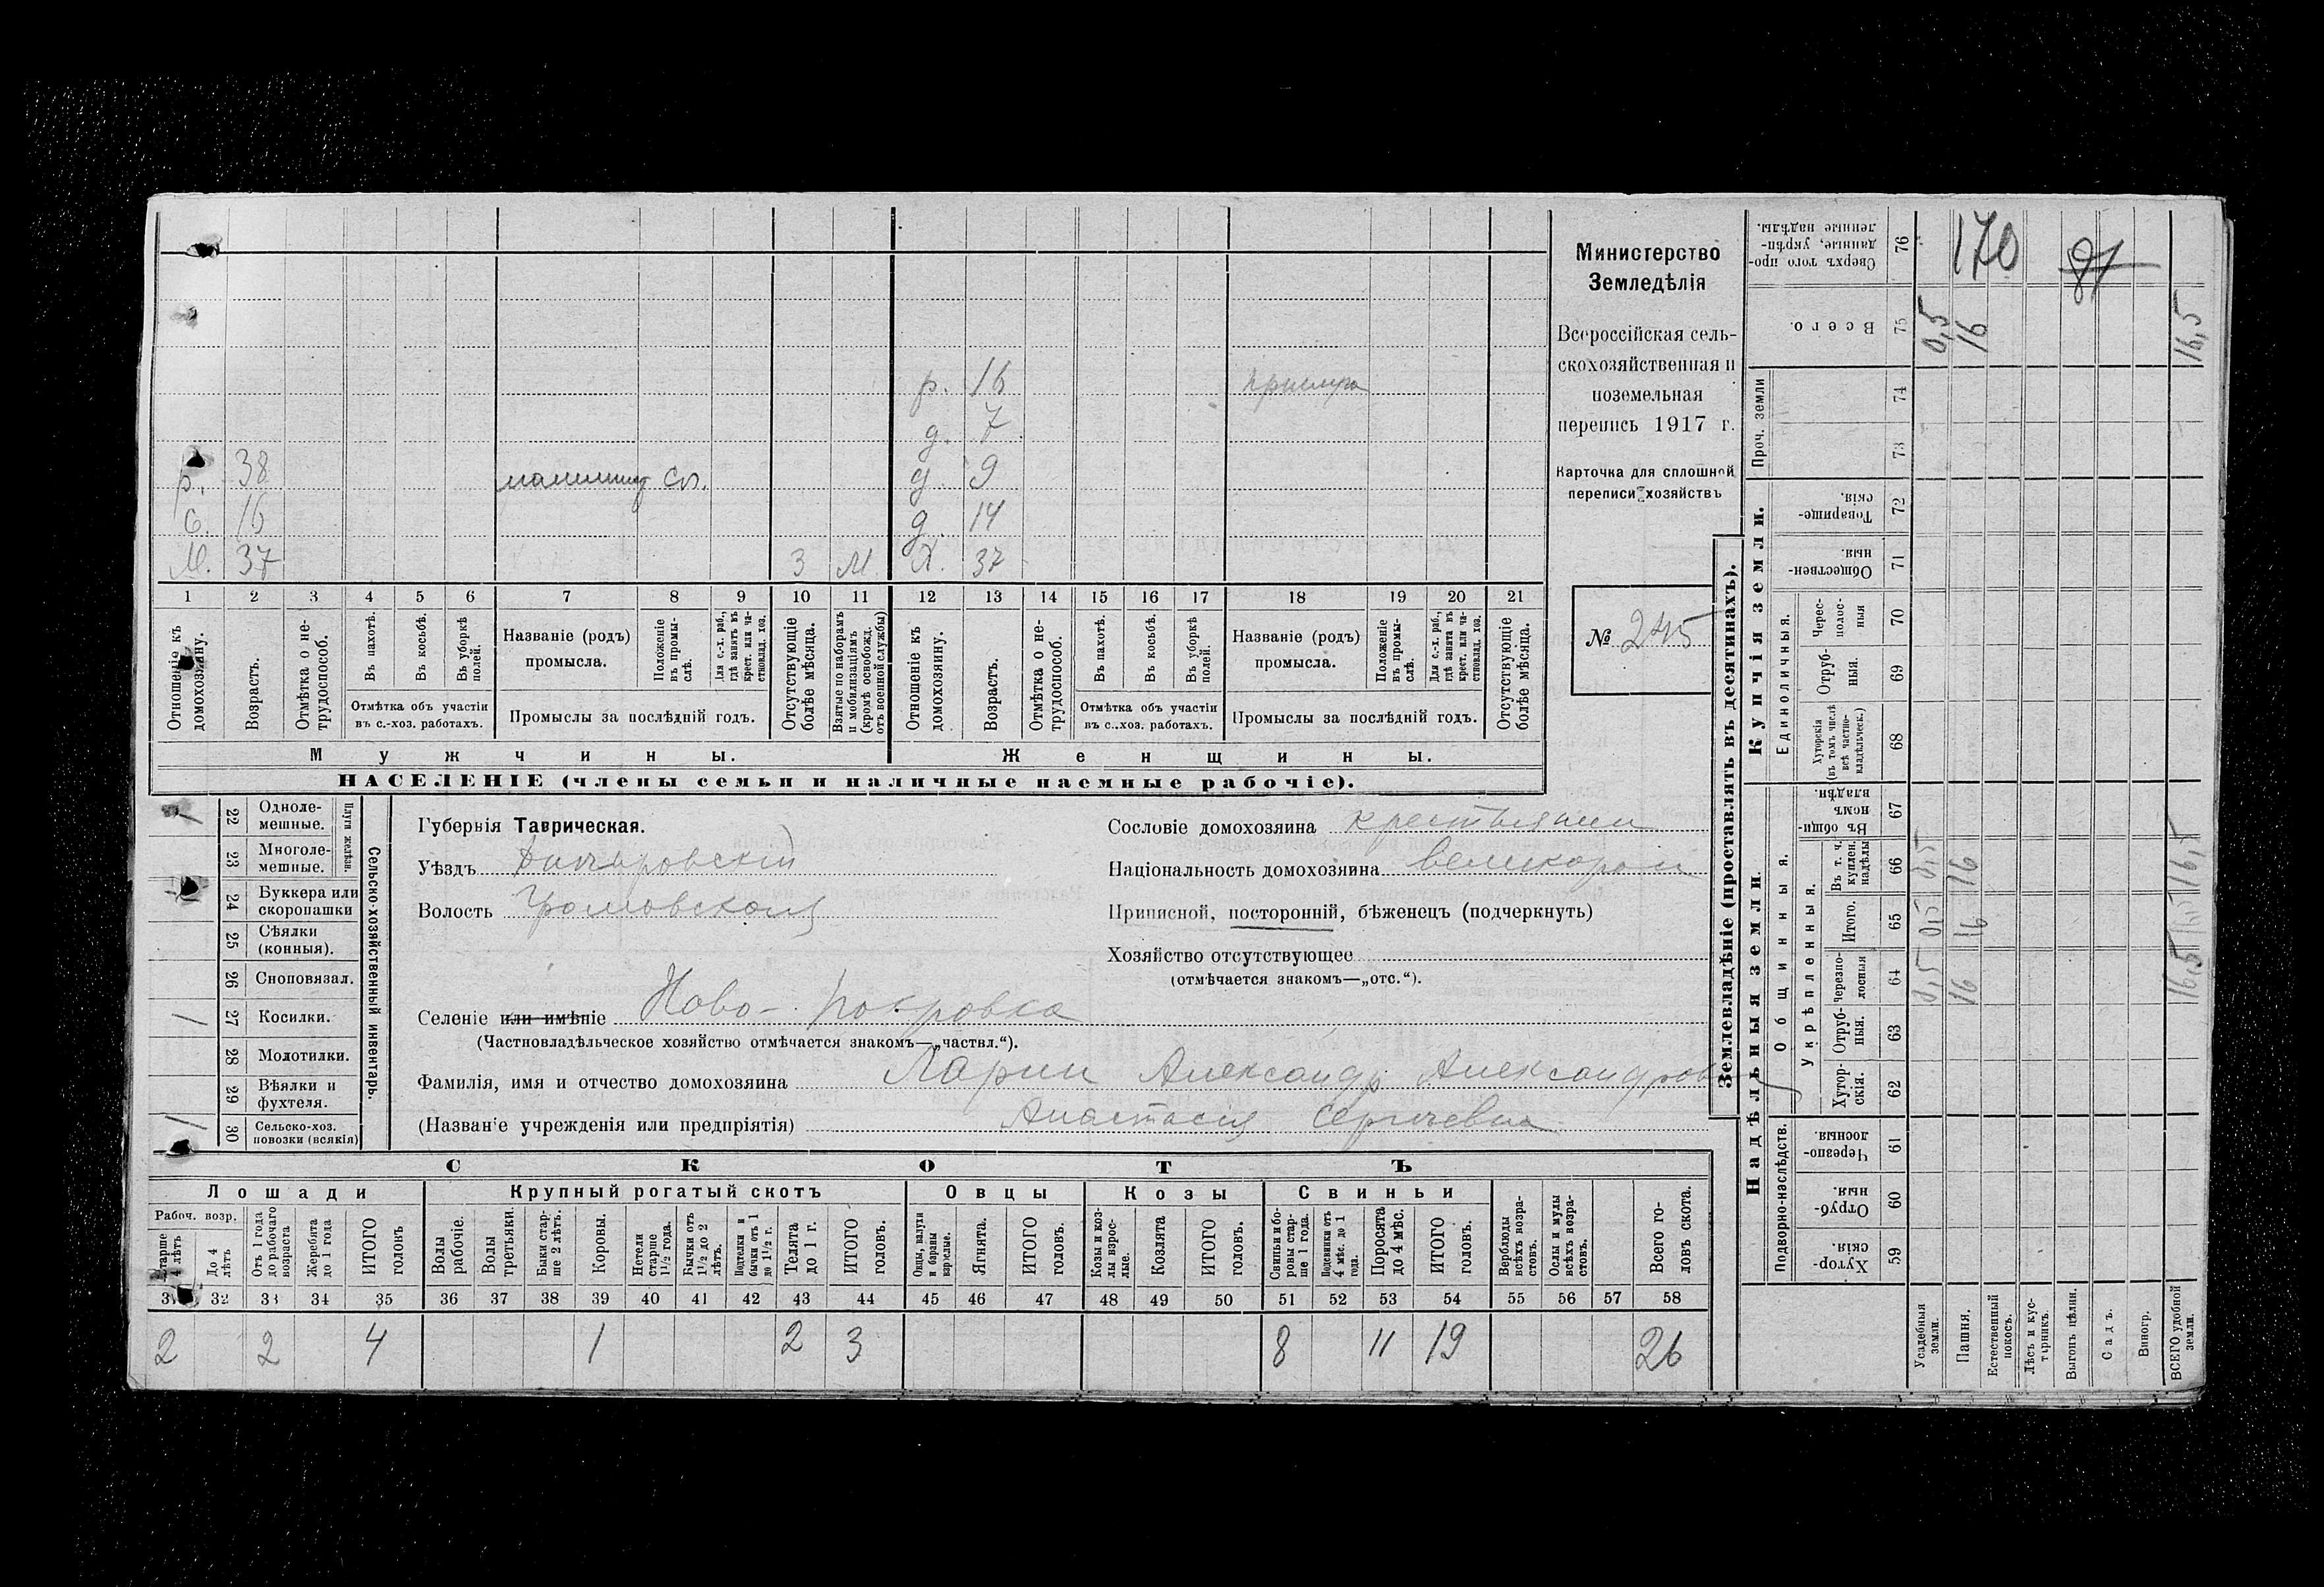 Министерство
Земледѣлія
Всероссійская сель-
скохозяйственная и
поземельная
перепись 1917 г.
Карточка для сплошной
переписи хозяйствъ
№ 245
р. 16
д. 7
р. 38 д. 9
с. 16 д. 14
М. 37 3 М Х. 37
1 2 3 4 5 6 7 8 9 10 11 12 13 14 15 16 17 18 19 20 21
Отношеніе къ домохозяину.
Возрастъ.
Отмѣтка о не-трудоспособ.
Въ пахотѣ.
Въ косьбѣ.
Въ уборкѣ полей.
Отмѣтка объ участіи
въ с.-хоз. работахъ.
Названіе (родъ)
промысла.
Положеніе въ промы-слѣ.
Для с.-х. раб., гдѣ занятъ въ крест. или ча-стновлад. хоз.
Промыслы за послѣдній годъ.
Отсутствующіе болѣе мѣсяца.
Взятые по наборамъ и мобилизаціямъ (кромѣ освобожд. отъ военной службы)
Отношеніе къ домохозяину.
Возрастъ.
Отмѣтка о не-трудоспособ.
Въ пахотѣ.
Въ косьбѣ.
Въ уборкѣ полей.
Отмѣтка объ участіи
въ с.-хоз. работахъ.
Названіе (родъ)
промысла.
Положеніе въ промы-слѣ.
Для с.-х. раб., гдѣ занята въ крест. или ча-стновлад. хоз.
Промыслы за послѣдній годъ.
Отсутствующіе болѣе мѣсяца.
Мужчины. Женщины.
НАСЕЛЕНІЕ (члены семьи и наличные наемные рабочіе).
Сельско-хозяйственный инвентарь.
Плуги желѣзн.
22 Одноле-мешные.
23 Многоле-мешные.
24 Буккера или скоропашки
25 Сѣялки (конныя).
26 Сноповязал.
27 Косилки.
28 Молотилки.
29 Вѣялки и фухтеля.
30 Сельско-хоз. повозки (всякія)
Губернія Таврическая.
Уѣздъ Днѣпровскій
Волость Громовская
Селеніе или имѣніе Ново-Покровка
(Частновладѣльческое хозяйство отмѣчается знакомъ—„частвл.“).
Фамилія, имя и отчество домохозяина Ларин Александр Александров
(Названіе учрежденія или предпріятія) Анастасия Сергеевна
Сословіе домохозяина крестьянин
Національность домохозяина великорос
Приписной, посторонній, бѣженецъ (подчеркнуть)
Хозяйство отсутствующее
(отмѣчается знакомъ—„отс.“).
СКОТЪ
Лошади Крупный рогатый скотъ Овцы Козы Свиньи
Рабоч. возр.
Старше 4 лѣтъ
До 4 лѣтъ
Отъ 1 года до рабочаго возраста
Жеребята до 1 года
ИТОГО головъ
Волы рабочіе.
Волы третьяки.
Быки стар-ше 2 лѣтъ.
Коровы.
Нетели старше 1½ года.
Бычки отъ 1½ до 2 лѣтъ.
Подтелки и бычки отъ 1 до 1½ г.
Телята до 1 г.
ИТОГО головъ.
Овцы, валухи и бараны взрослые.
Ягнята.
ИТОГО головъ.
Козы и коз-лы взрос-лые.
Козлята
ИТОГО головъ.
Свиньи и бо-ровы стар-ше 1 года.
Подсвинки отъ 4 мѣс. до 1 года.
Поросята до 4 мѣс.
ИТОГО головъ.
Верблюды всѣхъ возра-стовъ.
Ослы и мулы всѣхъ возра-стовъ.
Всего го-ловъ скота.
31 32 33 34 35 36 37 38 39 40 41 42 43 44 45 46 47 48 49 50 51 52 53 54 55 56 57 58
2 2 4 1 2 3 8 11 19 26
Землевладѣніе (проставлять въ десятинахъ).
Купчія земли.
Надѣльныя земли.
Проч. земли
Единоличныя.
Общинныя.
Укрѣпленныя.
Подворно-наслѣдств.
Сверхъ того про-данные, укрѣп-ленные надѣлы. 76
Всего. 75
74
73
Товарище-скія. 72
Обществен-ныя. 71
Черес-полос-ныя 70
Отруб-ныя. 69
Хуторскія (въ томъ числѣ всѣ частно-владѣльческ.) 68
Въ общин-номъ владѣн. 67
Въ т. ч. куплен. надѣлы 66
Итого. 65
Черезпо-лосныя 64
Отруб-ныя. 63
Хутор-скія. 62
Черезпо-лосныя 61
Отруб-ныя. 60
Хутор-скія. 59
Усадебныя земли.
Пашня.
Естественный покосъ.
Лѣсъ и кус-тарникъ.
Выгонъ цѣлин.
Садъ.
Виногр.
ВСЕГО удобной земли.
170 81
0,5 16 16,5
0,5 16 16,5
0,5 16
0,5 16 16,5